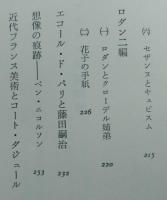 (六) セザンヌとキュビスム 215
ロダン二編
(一) ロダンとクローデル姉弟 220
(二) 花子の手紙 226
エコール・ド・パリと藤田嗣治 232
想像の痕跡――ベン・ニコルソン 253
近代フランス美術とコート・ダジュール